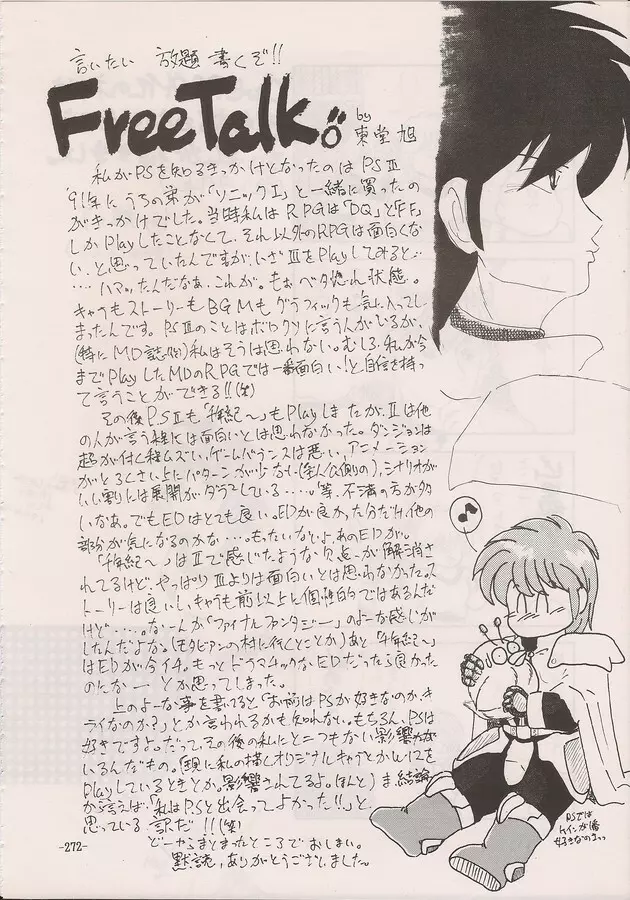 言いたい 放題 書くぞ!!
FreeTalk
by
東堂 旭
私がPSを知るきっかけとなったのは PSⅢ
'91年にうちの弟が「ソニックⅠ」と一緒に買ったの
がきっかけでした。当時私は RPGは「DQ」と「FF」
しかPlayしたことなくて、それ以外のRPGは面白くな
い、と思っていたんですが、いざⅢをPlayしてみると…
…ハマったんだなあ、これが。もぉベタ惚れ状態。
キャラもストーリーもBGMもグラフィックも気に入ってし
まったんです。PSⅢのことはボロクソに言う人がいるが、
(特にMD誌)私はそうは思わない。むしろ、私が今
までPlayしたMDのRPGでは一番面白い!と、自信を持っ
て言うことができる!!(笑)
その後PSⅡも「千年紀〜」もPlayしましたが、Ⅱは他
の人が言う程には面白いとは思わなかった。ダンジョンは
超が付く程ムズい、ゲームバランスは悪い、アニメーション
がとろくさい上にパターンが少ない(主人公側の)、シナリオが
いい割には展開がダラ〜としている……等、不満の方が多
いなあ。でもEDはとても良い。EDが良かった分だけ、他の
部分が気になるのかな…。もったいなとよ、あのEDが。
「千年紀〜」はⅡで感じたような欠点が解消さ
れてるけど、やっぱりⅢよりは面白いとは思わなかった。ス
トーリーは良いし、キャラも前以上に個性的ではあるんだ
けど……。なーんか「ファイナルファンタジー」のよーな感じが
したんだよな。(モタビアンの村に行くとことか)あと「千年紀〜」
はEDが今イチ。もっとドラマチックなEDだったら良かった
のになー とか思ってしまった。
上のよーな事を書いてると「お前はPSが好きなのか、キ
ライなのか?」とか言われるかも知れない。もちろん、PSは
好きですよ。だって、その後の私にとてつもない影響が
いるんだもの。(現に私の描くオリジナルキャラとか
Playしているときとか。影響されてるよ。ほんと)ま、結論
から言えば、「私はPSと出会ってよかった!!」と
思っている訳だ!!(笑)
どーやらまとまったところでおしまい。
黙読、ありがとうございました。
-272-
♪
PSでは
ケインが1番
好きなのさっ